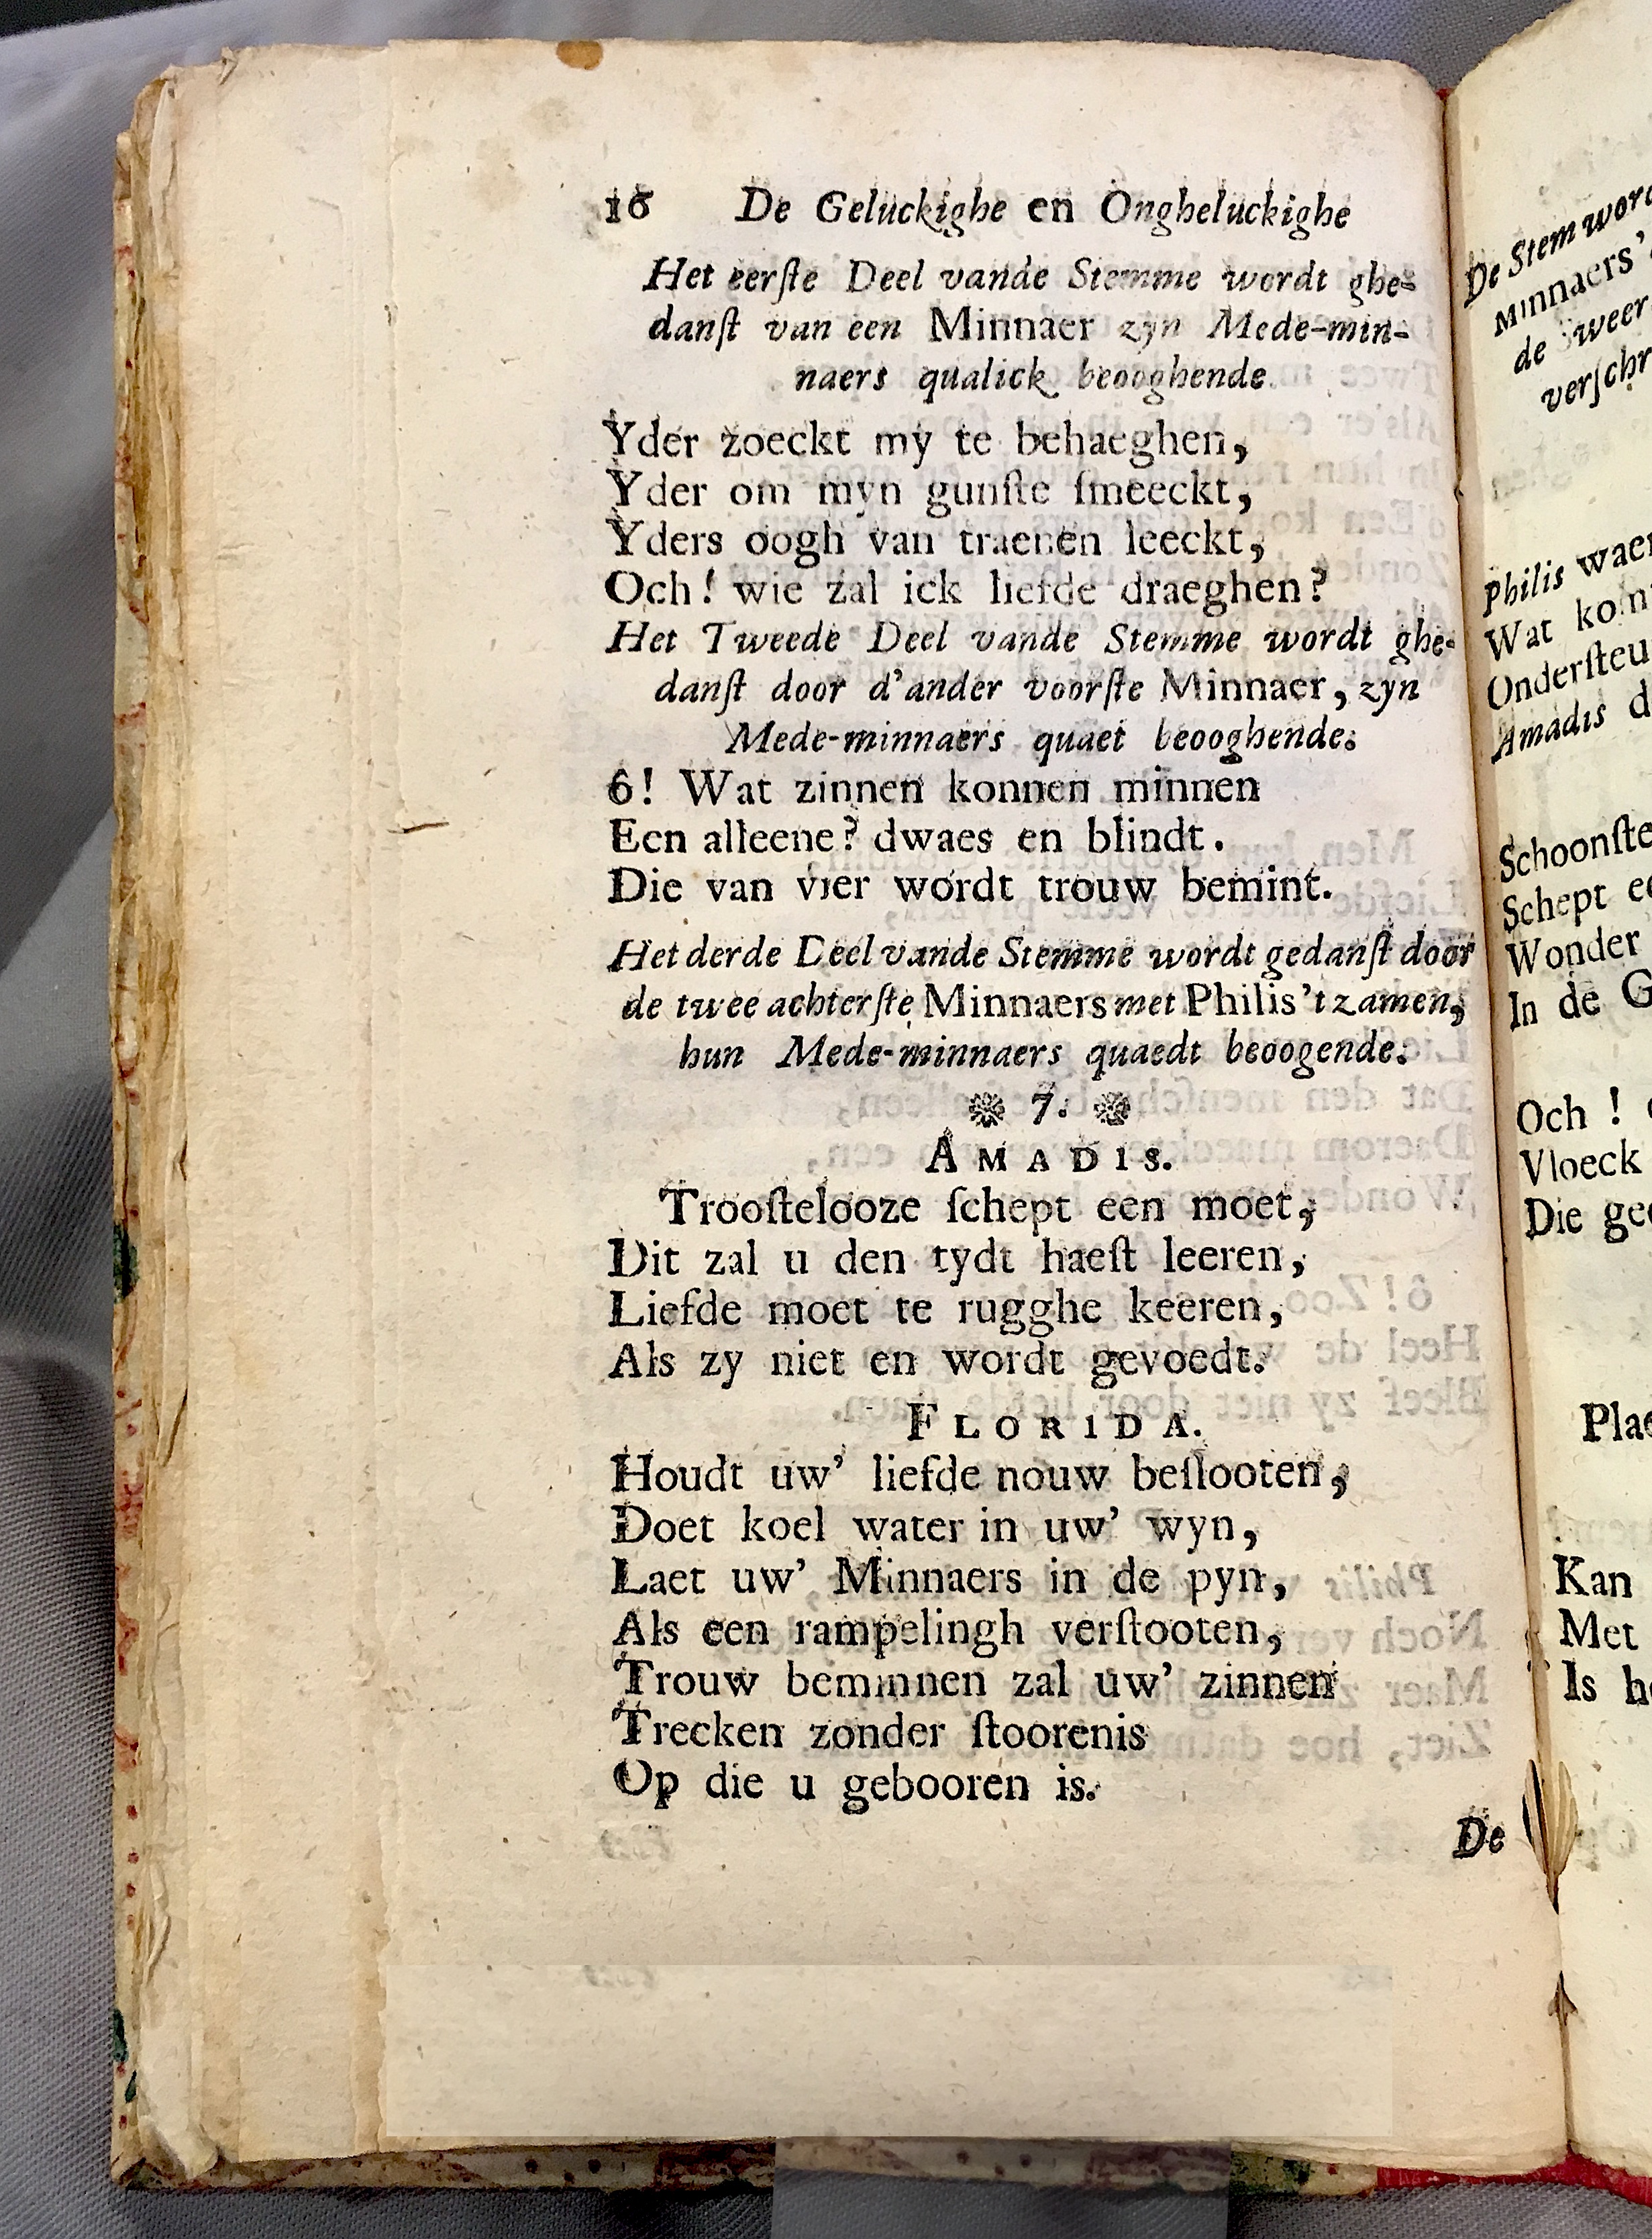 16 De Geluckighe en Ongheluckighe
Het eerſte Deel vande Stemme wordt ghe-
danſt van een Minnaer zyn Mede-min-
naers qualick beooghende.
Yder zoeckt my te behaeghen,
Yder om myn gunſte ſmeeckt,
Yders oogh van traenen leeckt,
Och! wie zal ick liefde draeghen?
Het Tweede Deel vande Stemme wordt ghe-
danſt door d'ander voorſte Minnaer, zyn
Mede-minnaers quaet beooghende.
ô! Wat zinnen konnen minnen
Een alleene? dwaes en blindt.
Die van vier wordt trouw bemint.
Het derde Deel vande Stemme wordt gedanſt door
de twee achterſte Minnaers met Philis 't zamen,
hun Mede-minnaers quaedt beoogende.
7.
AMADIS.
Trooſtelooze ſchept een moet,
Dit zal u den tydt haeſt leeren,
Liefde moet te rugghe keeren,
Als zy niet en wordt gevoedt.
FLORIDA.
Houdt uw' liefde nouw beſlooten,
Doet koel water in uw' wyn,
Laet uw' Minnaers in de pyn,
Als een rampelingh verſtooten,
Trouw beminnen zal uw' zinnen
Trecken zonder ſtoorenis
Op die u gebooren is.
De
De Stem
Minnaers'
de
Philis
Wat
Amadis
Schept
Wonder
In de
Och !
Vloeck
Die
Kan
Met
Is